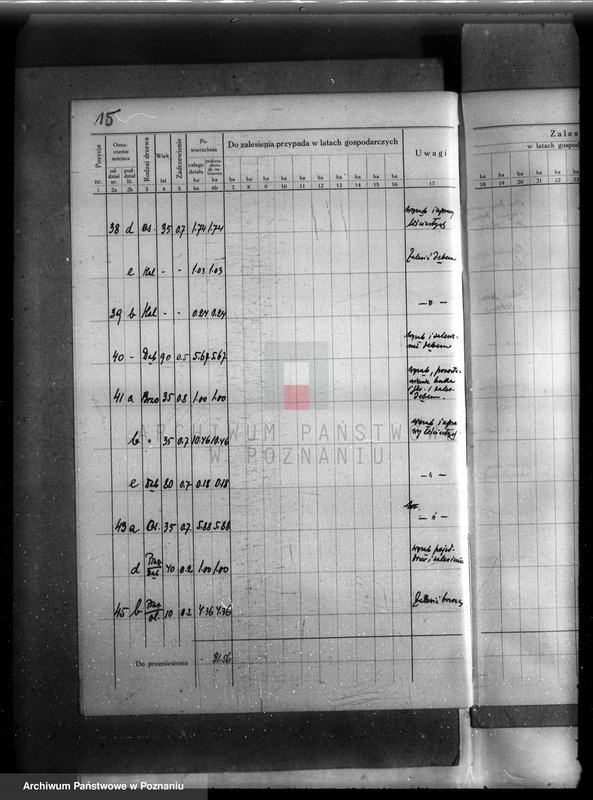 15
Pozycja nr.
Ozna- czenie miejsca
od- dział nr.
pod- dział lit.
Rodzaj drzewa
Wiek lat
Zadrzewienie
Po- wierzchnia
całego działu ha
ha
Do zalesienia przypada w latach gospodarczych
ha ha ha ha ha ha ha ha ha ha
Uwagi
1 2a 2b 3 4 5 6a 6b 7 8 9 10 11 12 13 14 15 16 17
38 d Os. 35 0.7 1.74 1.74
e Hal - - 1.03 1.03 Zalesić dębem
39 b Hal - - 0.24 0.24 — " —
40 - Dąb 90 0.5 5.67 5.67 wyrąb i zalesie- nie dębem
41 a Brzo 35 0.8 1.00 1.00 wyrąb, dębem.
b " 35 0.7 10.46 10.46 wyrąb
e Dąb 80 0.7 0.18 0.18 — " —
43 a Os. 35 0.7 5.88 5.88 — " —
d 40 0.2 1.00 1.00 wyrąb i zalesienie
45 b 10 0.2 4.36 4.36 Zalesić brzozą
Do przeniesienia - 31.56
Zales
w latach gospod
ha ha ha ha ha ha
18 19 20 21 22 23
ARCHIWUM PAŃSTW
W POZNANIU
Archiwum Państwowe w Poznaniu